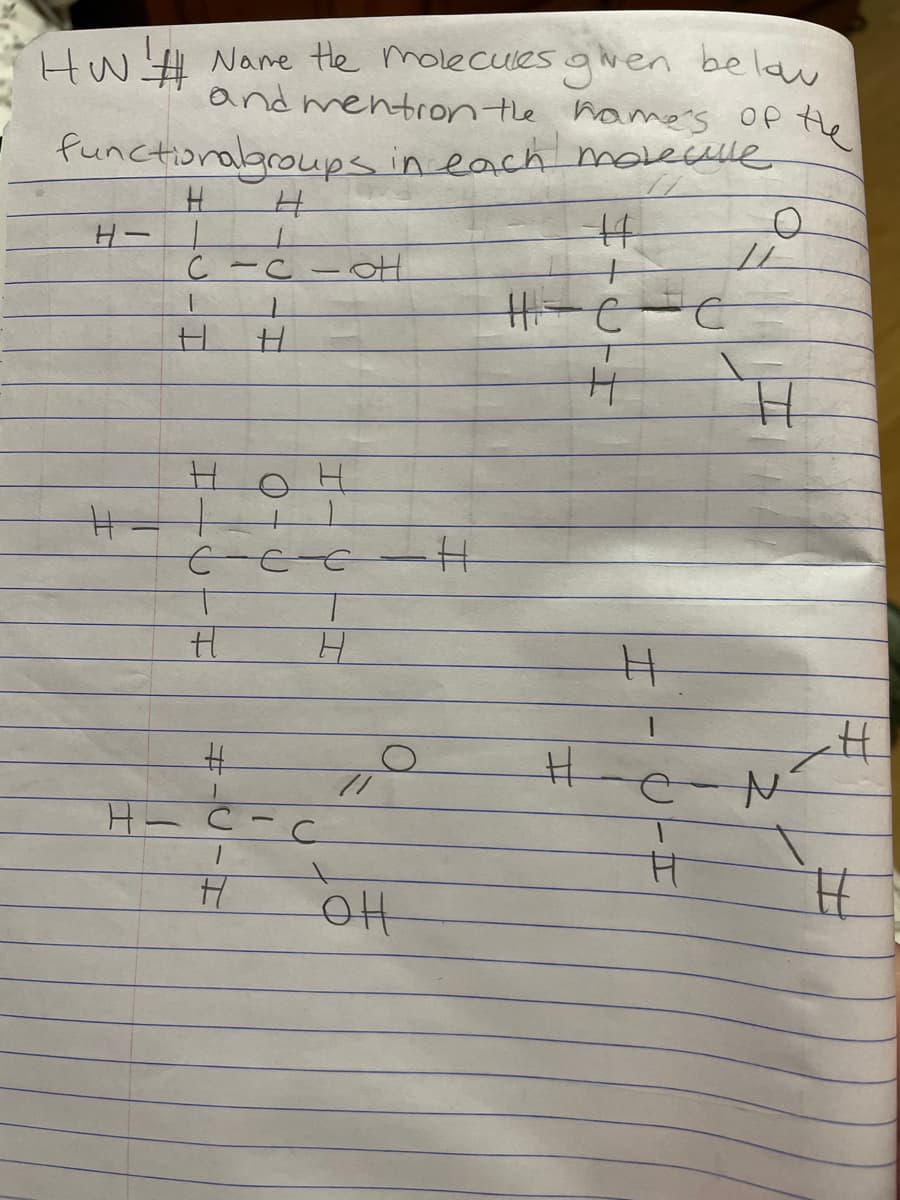 HW'# Name the molecules given below
and mention the names of the
functionalgroups in each molecule
H H
H - | |
C - C - OH
| |
H H
H O
| //
H - C - C
| \
H H
H O H
H - | | |
C - C - C - H
| |
H H
H O
| //
H - C - C
| \
H OH
H
| H
H - C - N /
| \
H H